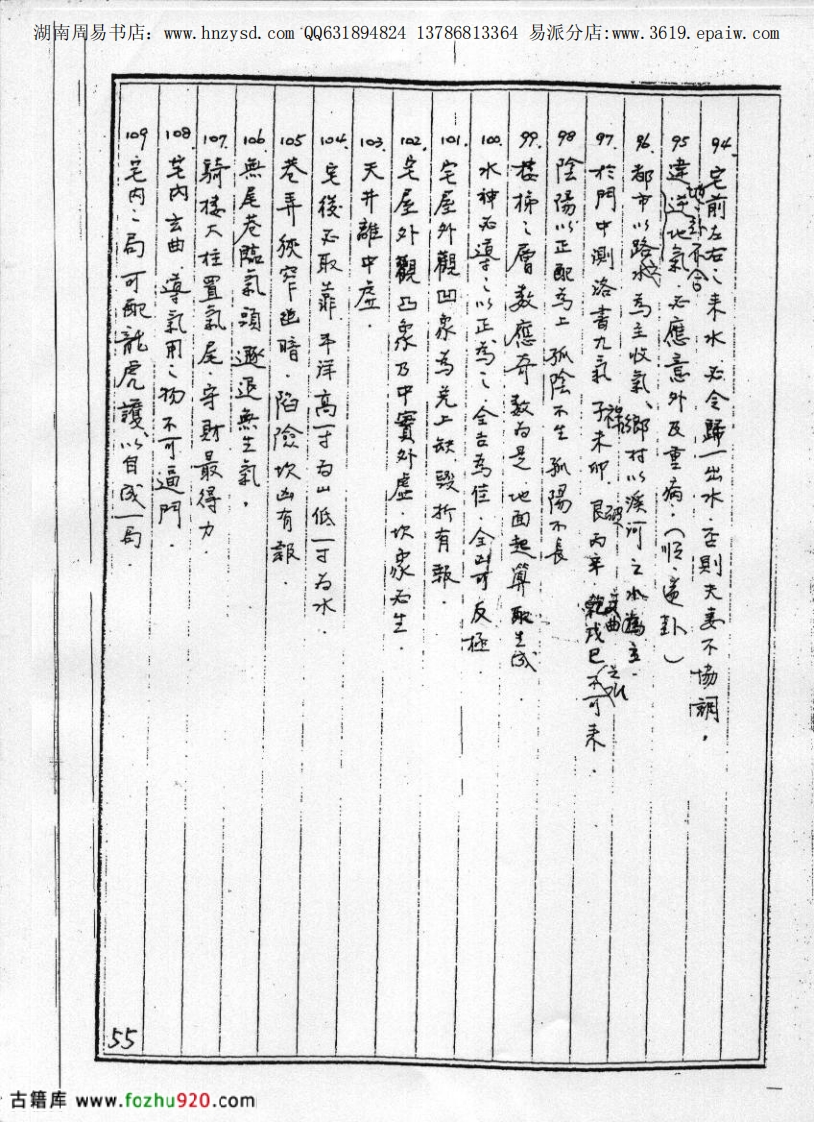 湖南周易书店：www.hnzysd.com QQ631894824 13786813364 易派分店:www.3619.epaiw.com
94. 宅前左右之来水，必令歸一出水．否則夫妻不協調，
95 違逆地氣．必應意外及重病．（順．逆卦）
坤卦不合
96. 都市以路水為主收氣、鄉村以溪河之水為主．
97. 於門中測洛書九氣 子未卯．艮丙辛．乾戌巳 不可来．
祿 破 文曲
98 陰陽以正配為上 孤陰不生 孤陽不長
99. 楼梯之層数應奇数為是．地面起算取生成
100. 水神必導之以正為之．全吉為佳．全凶可反極
101. 宅屋外觀凹象為兑上缺．毀折有報．
102. 宅屋外觀凸象乃中實外虛．坎象必生．
103. 天井離中虛．
104. 宅後必取靠．平洋高一寸為山 低一寸為水．
105 巷弄狹窄幽暗．陷險坎凶有報．
106. 無尾巷臨氣頭 逐退無生氣，
107. 騎楼大柱置氣尾 守財最得力．
108. 宅内玄曲 導氣用之物不可逼門．
109 宅内之局可配龍虎護、以自成一局．
55
古籍库 www.fozhu920.com